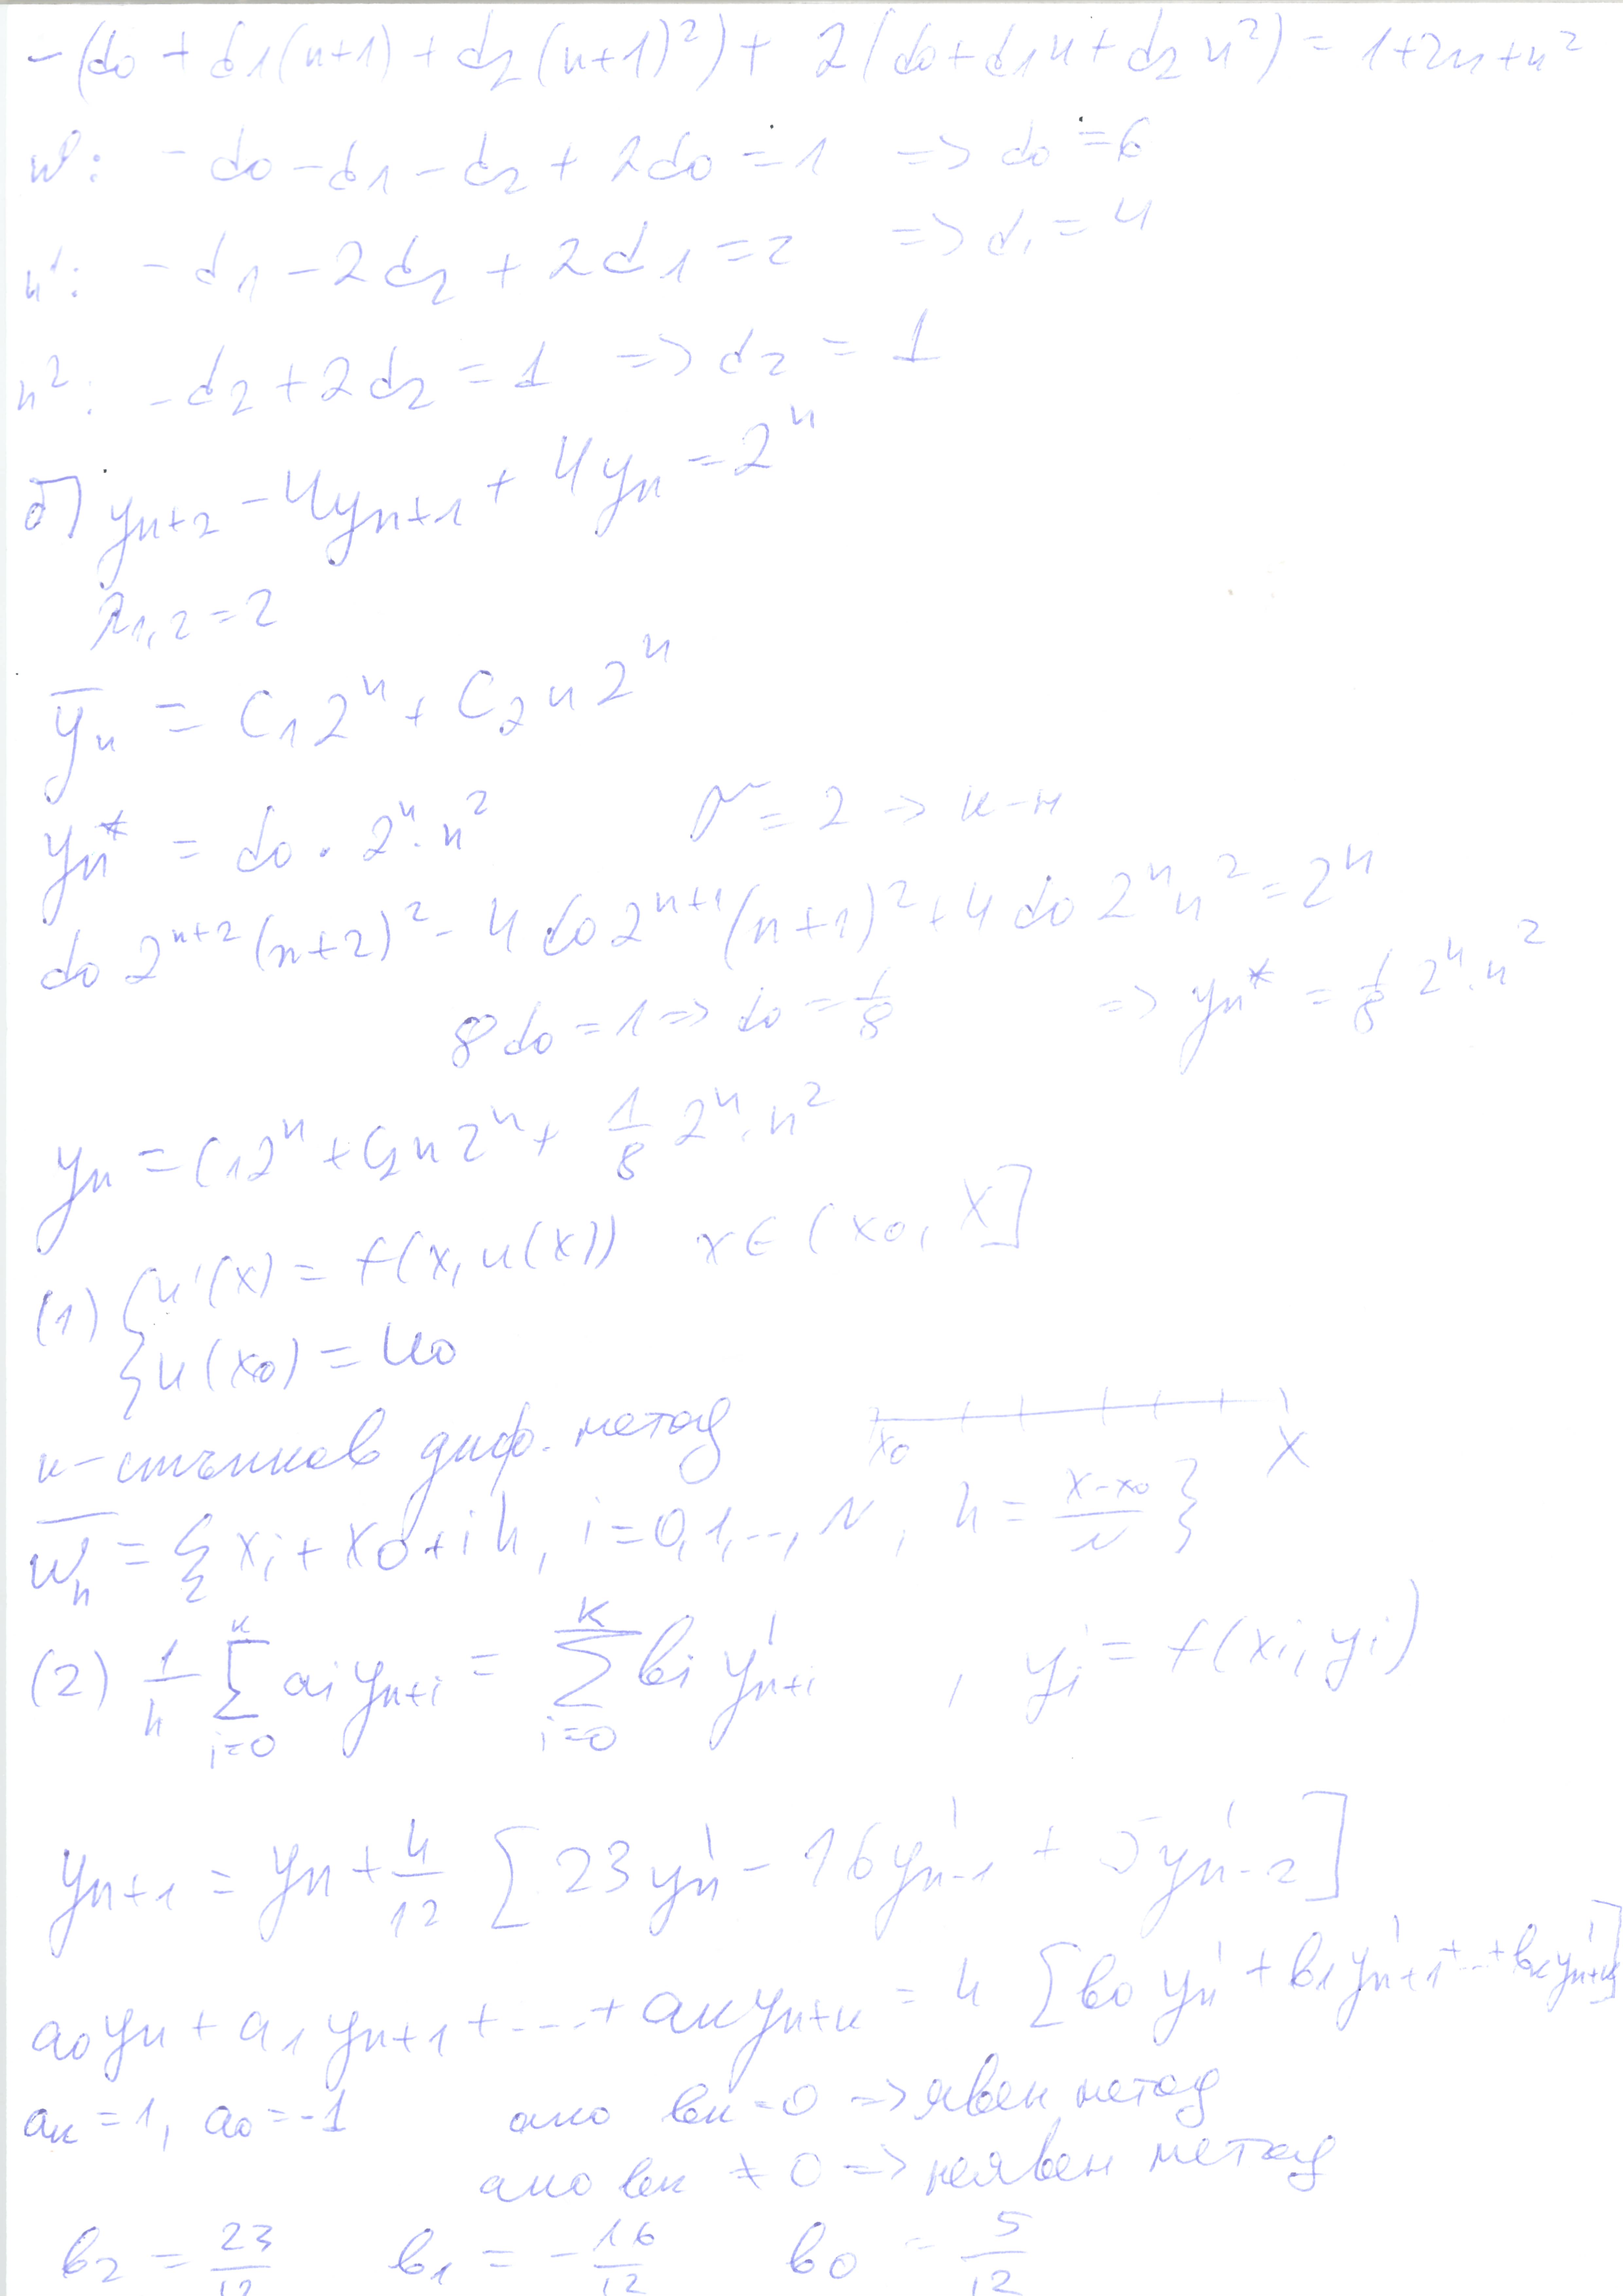 -(d0 + d1(n+1) + d2(n+1)²) + 2(d0+d1n+d2n²) = 1+2n+n²
n⁰: -d0 - d1 - d2 + 2d0 = 1 => d0 = 6
n¹: -d1 - 2d2 + 2d1 = 2 => d1 = 4
n²: -d2 + 2d2 = 1 => d2 = 1
б) yn+2 - 4yn+1 + 4yn = 2ⁿ
λ1,2 = 2
ȳn = C1 2ⁿ + C2 n 2ⁿ
yn* = d0 . 2ⁿ . n² = 2 ->
d0 2ⁿ⁺² (n+2)² - 4 d0 2ⁿ⁺¹ (n+1)² + 4 d0 2ⁿ n² = 2ⁿ
8 d0 = 1 => d0 = 1/8 => yn* = 1/8 2ⁿ . n²
yn = C1 2ⁿ + C2 n 2ⁿ + 1/8 2ⁿ . n²
(1) { u'(x) = f(x, u(x)) x ∈ (x0, X]
{ u(x0) = u0
к-стъпков диф. метод x0 X
ω̄h = { xi + x0 + ih, i = 0,1,..., N, h = (X - x0)/N }
(2) 1/h Σ_{i=0}^{k} ai yn+i = Σ_{i=0}^{k} bi y'n+i , y'i = f(xi, yi)
yn+1 = yn + h/12 [23 y'n - 16 y'n-1 + 5 y'n-2]
a0 yn + a1 yn+1 + .... + ak yn+k = h [b0 y'n + b1 y'n+1 + ... + bk y'n+k]
ak = 1, a0 = -1 ако bk = 0 => явен метод
ако bk ≠ 0 => неявен метод
b2 = 23/12 b1 = -16/12 b0 = 5/12